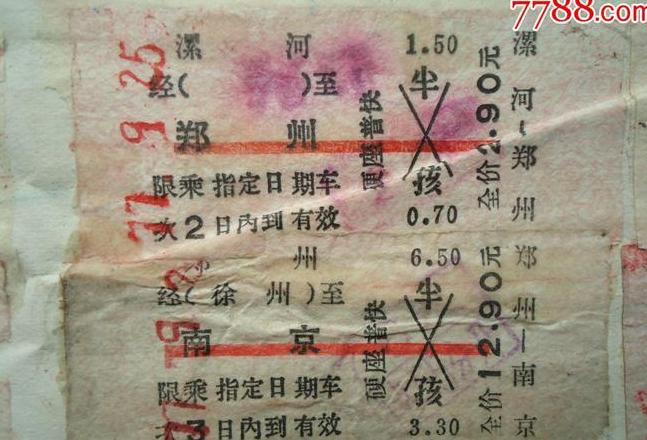 7788.com
漯 河 1.50
经( )至 半
郑 州
限乘指定日期车 孩
次2日内到有效 0.70
硬座普快
全价2.90元
漯河—郑州
77 9 25
州 6.50
经(徐 州)至 半
南 京
限乘指定日期车 孩
3日内到有效 3.30
硬座普快
全价12.90元
郑州—南京